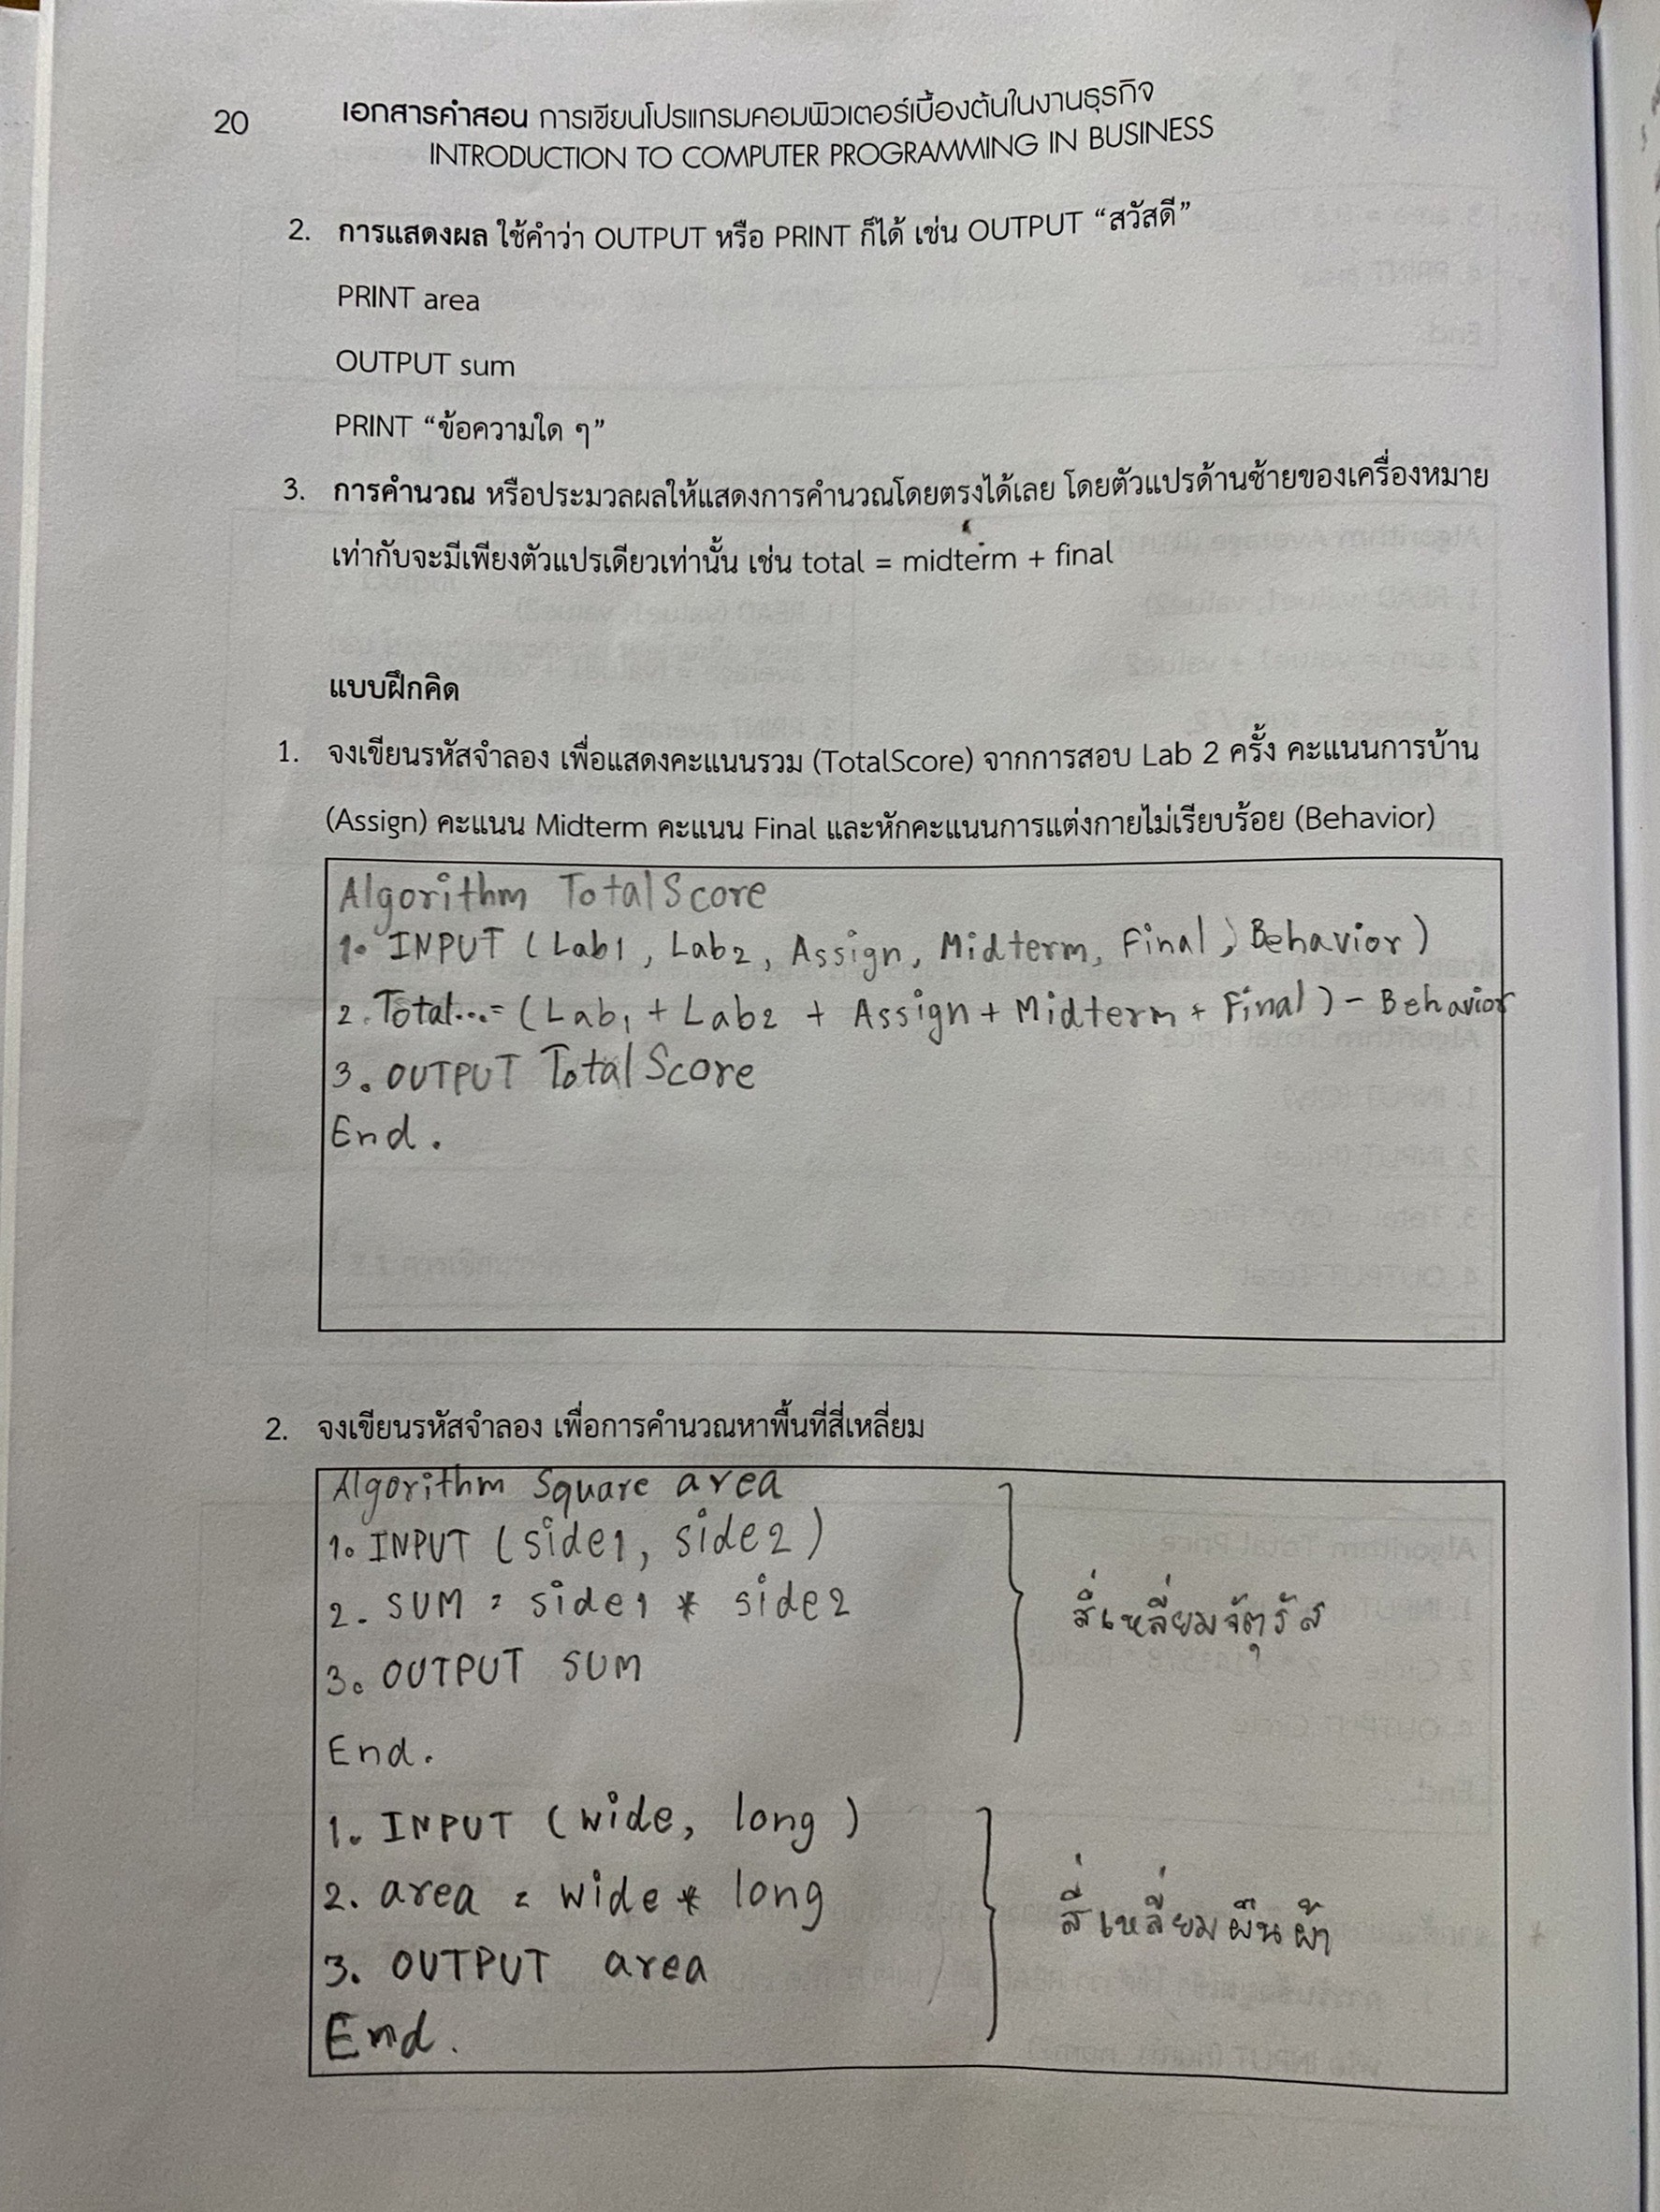 20
เอกสารคำสอน การเขียนโปรแกรมคอมพิวเตอร์เบื้องต้นในงานธุรกิจ
INTRODUCTION TO COMPUTER PROGRAMMING IN BUSINESS
2. การแสดงผล ใช้คำว่า OUTPUT หรือ PRINT ก็ได้ เช่น OUTPUT “สวัสดี”
PRINT area
OUTPUT sum
PRINT “ข้อความใด ๆ”
3. การคำนวณ หรือประมวลผลให้แสดงการคำนวณโดยตรงได้เลย โดยตัวแปรด้านซ้ายของเครื่องหมาย
เท่ากับจะมีเพียงตัวแปรเดียวเท่านั้น เช่น total = midterm + final
แบบฝึกคิด
1. จงเขียนรหัสจำลอง เพื่อแสดงคะแนนรวม (TotalScore) จากการสอบ Lab 2 ครั้ง คะแนนการบ้าน
(Assign) คะแนน Midterm คะแนน Final และหักคะแนนการแต่งกายไม่เรียบร้อย (Behavior)
Algorithm TotalScore
1. INPUT (Lab1, Lab2, Assign, Midterm, Final, Behavior)
2. Total...= (Lab1 + Lab2 + Assign + Midterm + Final) - Behavior
3. OUTPUT TotalScore
End.
2. จงเขียนรหัสจำลอง เพื่อการคำนวณหาพื้นที่สี่เหลี่ยม
Algorithm Square area
1. INPUT (side1, side2)
2. SUM = side1 * side2
3. OUTPUT SUM
End.
สี่เหลี่ยมจัตุรัส
1. INPUT (wide, long)
2. area = wide * long
3. OUTPUT area
End.
สี่เหลี่ยมผืนผ้า